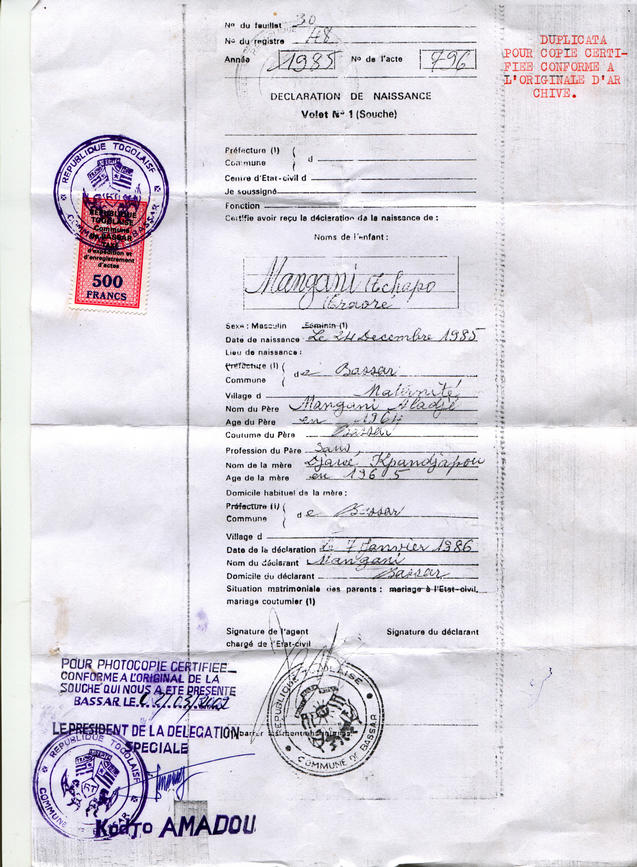 No du feuillet 30
No du registre 48
Année 1985 No de l'acte 796
DUPLICATA
POUR COPIE CERTI-
FIEE CONFORME A
L'ORIGINALE D'AR
CHIVE.
DECLARATION DE NAISSANCE
Volet No 1 (Souche)
Préfecture (1)
Commune d
Centre d'Etat-civil d
Je soussigné
Fonction
Certifie avoir reçu la déclaration de la naissance de :
Noms de l'enfant :
Mangani Tchapo
Traoré
REPUBLIQUE TOGOLAISE
COMMUNE DE BASSAR
REPUBLIQUE
TOGOLAISE
Commune
de BASSAR
TAXE
d'expédition et
d'enregistrement
d'actes
500
FRANCS
Sexe : Masculin Féminin (1)
Date de naissance Le 24 Decembre 1985
Lieu de naissance :
Préfecture (1)
Commune de Bassar
Village d Maternité
Nom du Père Mangani Aladji
Age du Père en 1964
Coutume du Père Bassar
Profession du Père Sans
Nom de la mère Kpandjapou
Age de la mère en 1965
Domicile habituel de la mère :
Préfecture (1)
Commune de Bassar
Village d
Date de la déclaration le 7 Janvier 1986
Nom du déclarant Mangani
Domicile du déclarant Bassar
Situation matrimoniale des parents : mariage à l'Etat-civil,
mariage coutumier (1)
Signature de l'agent Signature du déclarant
chargé de l'Etat-civil
POUR PHOTOCOPIE CERTIFIEE
CONFORME A L'ORIGINAL DE LA
SOUCHE QUI NOUS A ETE PRESENTE
BASSAR LE
LE PRESIDENT DE LA DELEGATION
SPECIALE
REPUBLIQUE TOGOLAISE
COMMUNE DE BASSAR
REPUBLIQUE TOGOLAISE
COMMUNE DE BASSAR
Kodjo AMADOU